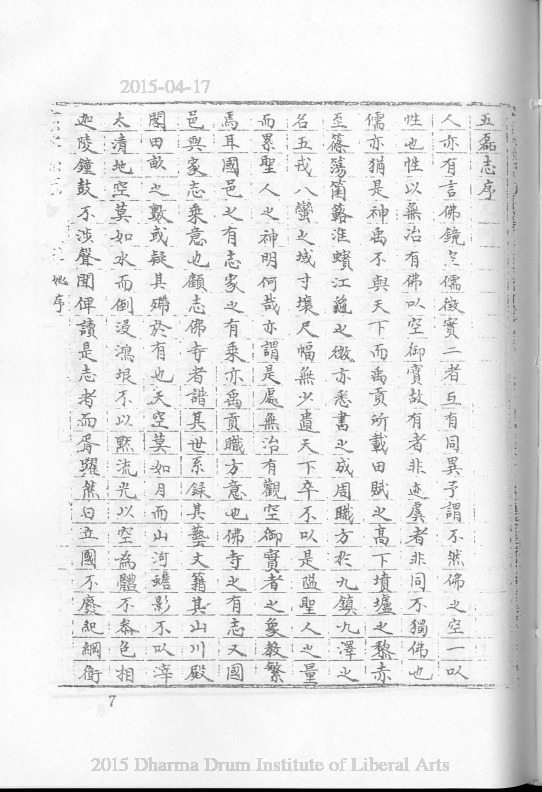 2015-04-17
五磊志序
人亦有言佛鏡空儒徵實二者互有同異予謂不然佛之空一以
性也性以無治有佛以空御實故有者非迹虞者非同不獨佛也
儒亦猶是神禹不與天下而禹貢所載田賦之高下墳壚之黎赤
至篠蕩箘簵淮蠙江龜之微亦悉書之成周職方於九鎮九澤之
名五戎八蠻之域寸壤尺幅無少遺天下卒不以是隘聖人之量
而累聖人之神明何哉亦謂是處無治有觀空御實者之象教繁
焉耳國邑之有志家之有乘亦禹貢職方意也佛寺之有志又國
邑與家志乘意也顧志佛寺者譜其世系録其藝文籍其山川殿
閣田畝之數或疑其滯於有也天空莫如月而山河蟾影不以滓
太清地空莫如水而倒浸鴻垠不以黙流光以空為體不泰色相
迦陵鐘鼓不涉聲聞俾讀是志者而胥躍然曰立國不廢紀綱衛
姚序
7
2015 Dharma Drum Institute of Liberal Arts